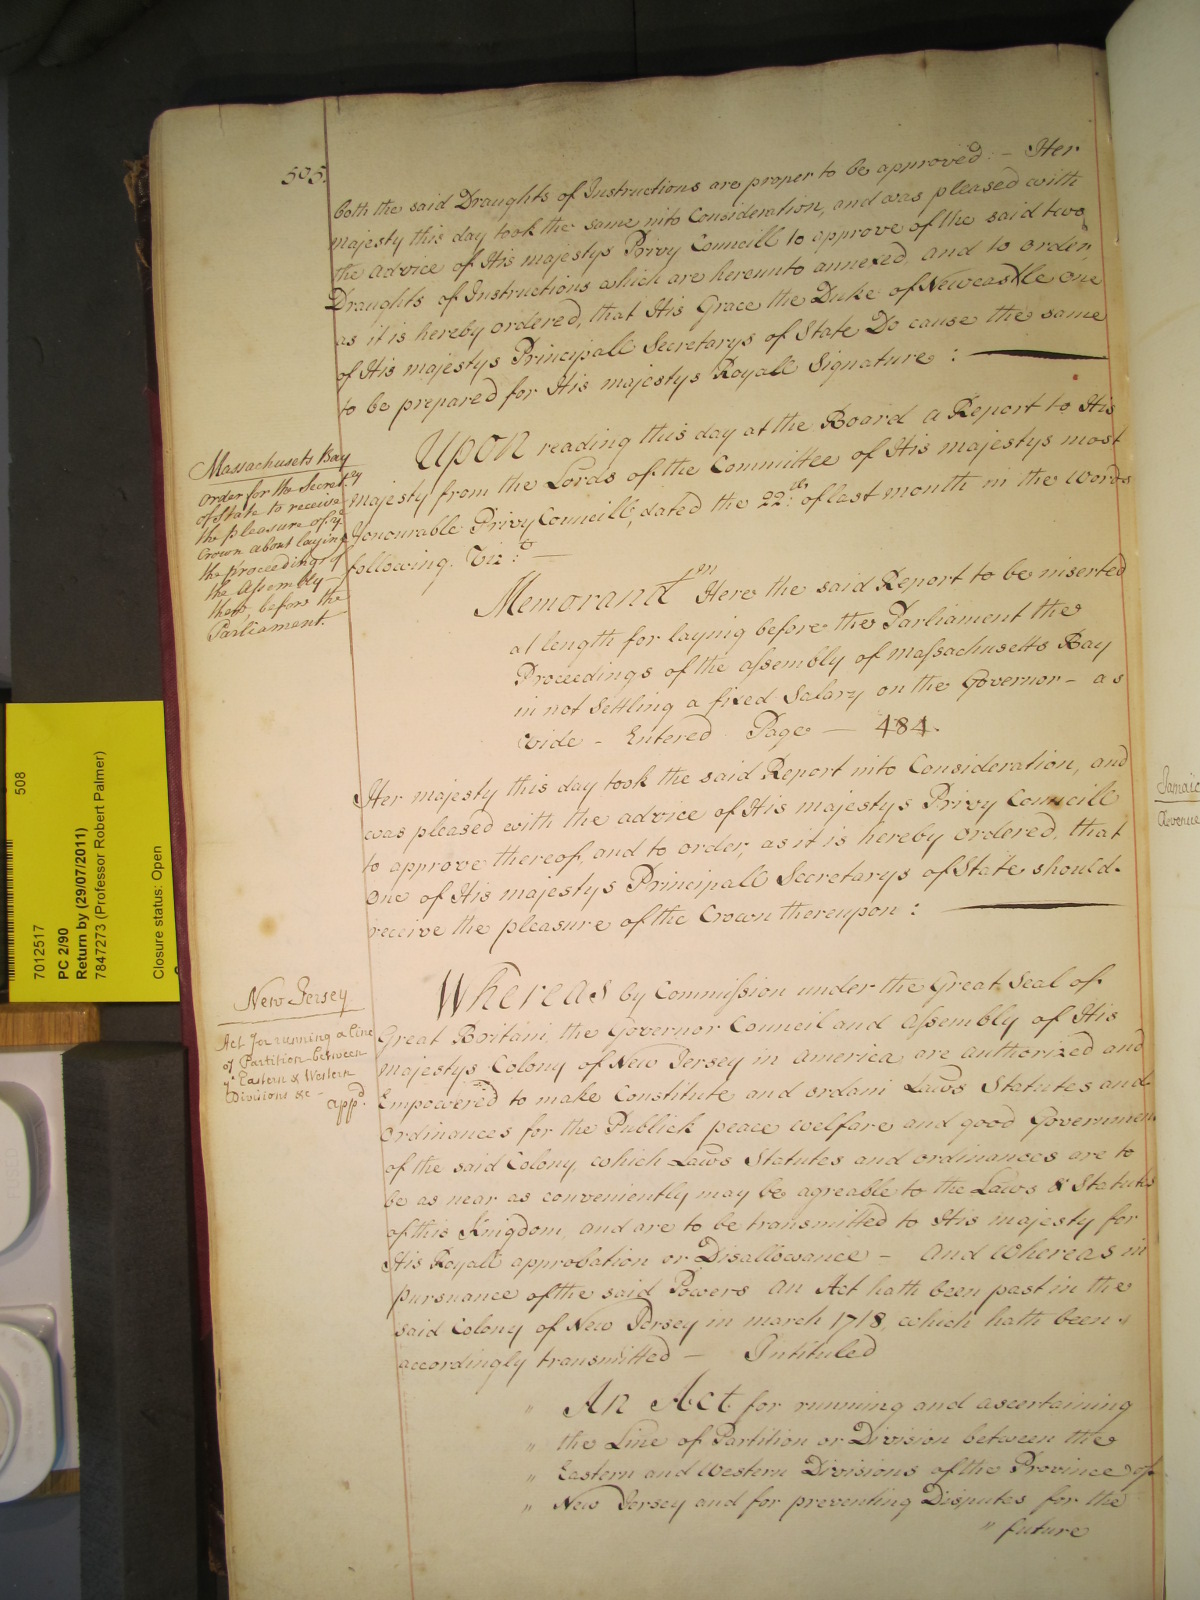 505.
both the said Draughts of Instructions are proper to be approved — Her
majesty this day took the same into Consideration, and was pleased with
the advice of His majestys Privy Councill to approve of the said two
Draughts of Instructions which are hereunto annexed, and to order,
as it is hereby ordered, that His Grace the Duke of Newcastle one
of His majestys Principall Secretarys of State Do cause the same
to be prepared for His majestys Royall Signature :
Massachusets Bay
order for the Secret.ry
of State to receive
the pleasure of ye
Crown about laying
the proceedings of
the Assembly
there, before the
Parliament.
Upon reading this day at the Board a Report to His
majesty from the Lords of the Committee of His majestys most
Honourable Privy Councill, dated the 22.th of last month in the words
following. Viz.t —
Memorand.m Here the said Report to be inserted
at length for laying before the Parliament the
Proceedings of the assembly of massachusetts Bay
in not settling a fixed Salary on the Governor — as
vide — Entered Page — 484.
Her majesty this day took the said Report into Consideration, and
was pleased with the advice of His majestys Privy Councill
to approve thereof, and to order, as it is hereby ordered, that
one of His majestys Principall Secretarys of State should
receive the pleasure of the Crown thereupon :
New Jersey
Act for running a line
of Partition between
ye Eastern & Western
Divisions &c —
appd.
Whereas by Commission under the Great Seal of
Great Britain, the Governor Council and Assembly of His
majestys Colony of New Jersey in america are authorized and
Empowered to make Constitute and ordain Laws Statutes and
Ordinances for the Publick peace welfare and good Governmen
of the said Colony, which Laws Statutes and ordinances are to
be as near as conveniently may be agreable to the Laws & Statutes
of this Kingdom, and are to be transmitted to His majesty for
His Royall approbation or Disallowance — And Whereas in
pursuance of the said Powers an Act hath been past in the
said Colony of New Jersey in march 1718, which hath been
accordingly transmitted — Intituled
" An Act for running and ascertaining
" the Line of Partition or Division between the
" Eastern and Western Divisions of the Province of
" New Jersey and for preventing Disputes for the
" future
Jamaic
Revenue
508
7012517
PC 2/90
Return by (29/07/2011)
7847273 (Professor Robert Palmer)
Closure status: Open